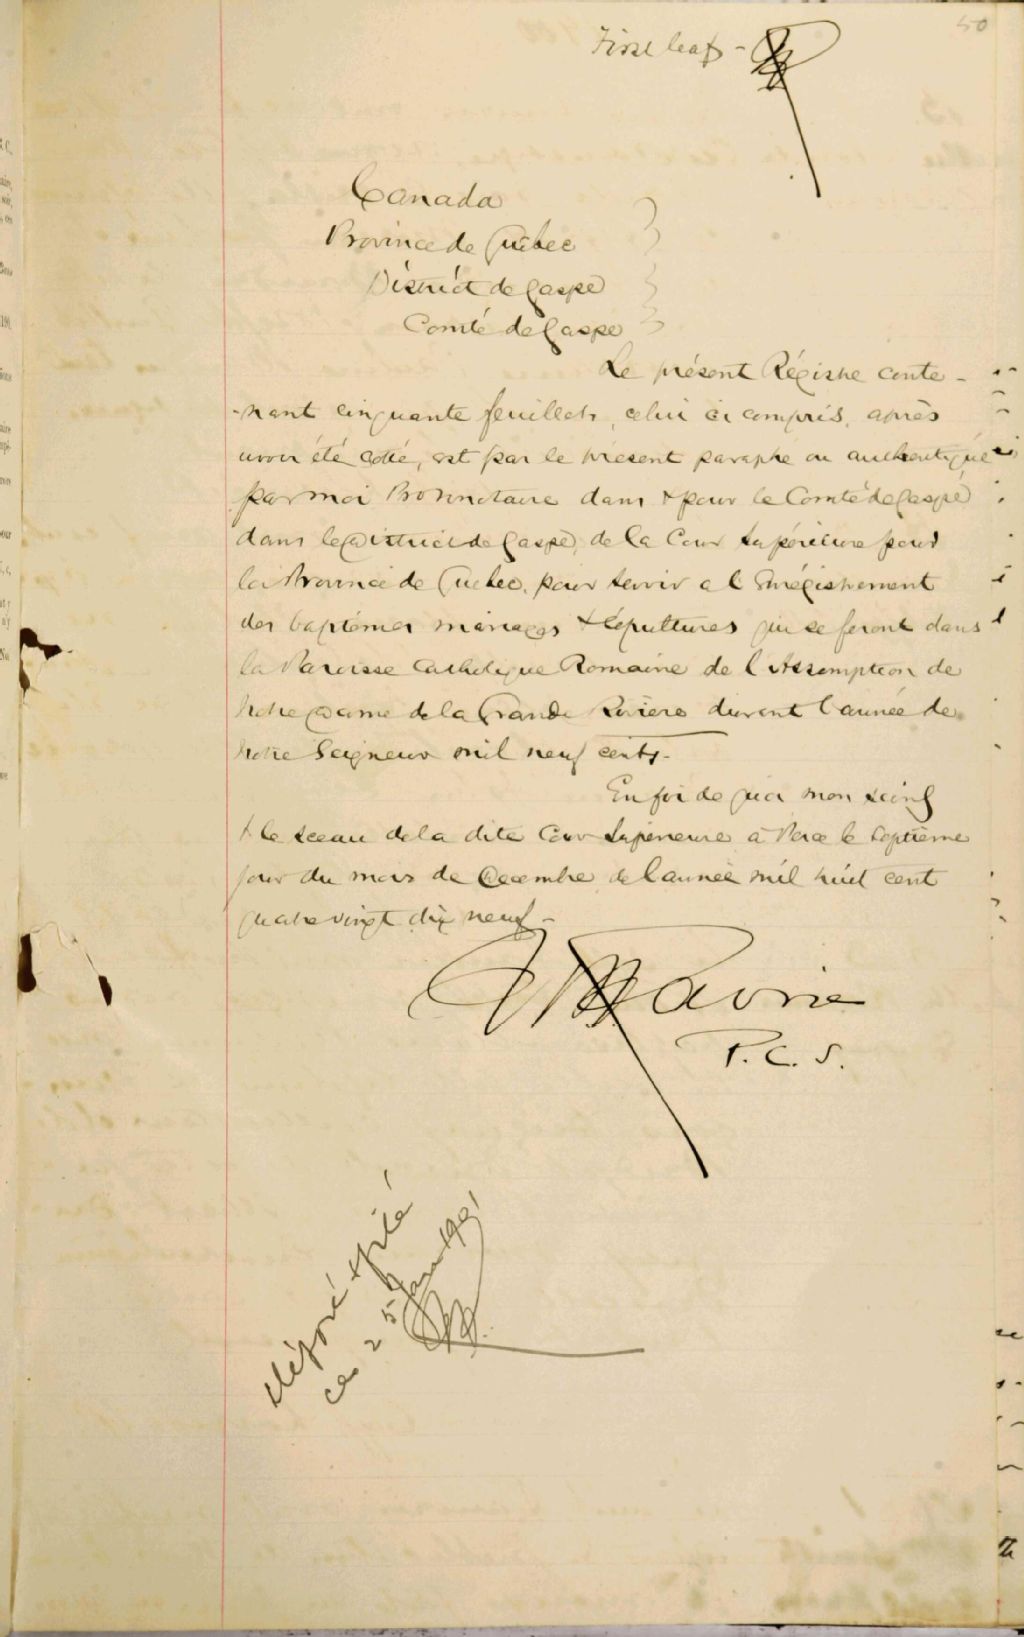 50
First leaf -
Canada
Province de Québec
District de Gaspé
Comté de Gaspé
Le présent Régistre conte-
-nant cinquante feuillets, celui ci compris, après
avoir été cotté, est par le présent paraphé ou authentiqué
par moi Protonotaire dans & pour le Comté de Gaspé
dans le District de Gaspé, de la Cour Supérieure pour
la Province de Québec, pour servir a l'Enrégistrement
des baptêmes mariages & Sépultures qui se feront dans
la Paroisse Catholique Romaine de l'Assomption de
Notre Dame de la Grande Rivière durant l'année de
Notre Seigneur mil neuf cents.
En foi de quoi mon seing
& le sceau de la dite Cour Supérieure à Percé le Septième
jour du mois de Decembre de l'année mil huit cent
quatre vingt dix neuf -
P. C. S.
déposé & filé
ce 25 Janv 1901